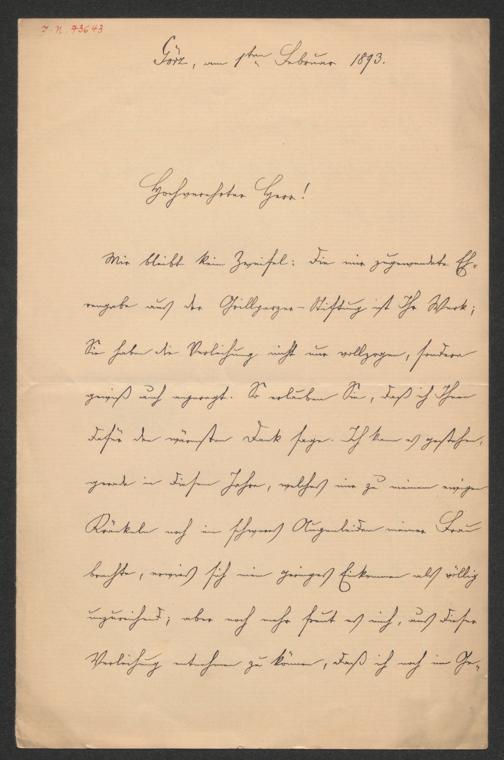 J. N. 73643
Görz, am 1ten Februar 1893.
Hochverehrter Herr!
Mir bleibt kein Zweifel: die mir zugewendete Eh-
rengabe aus der Grillparzer-Stiftung ist Ihr Werk;
Sie haben die Verleihung nicht nur vollzogen, sondern
gewiß auch angeregt. So erlauben Sie, daß ich Ihnen
dafür den wärmsten Dank sage. Ich kann es gestehen,
gerade in diesem Jahre, welches mir zu meinem ewigen
Kränkeln noch ein schweres Augenleiden meiner Frau
brachte, erwies sich mein geringes Einkommen als völlig
unzureichend; aber noch mehr freut es mich, aus dieser
Verleihung entnehmen zu können, daß ich noch im Ge-